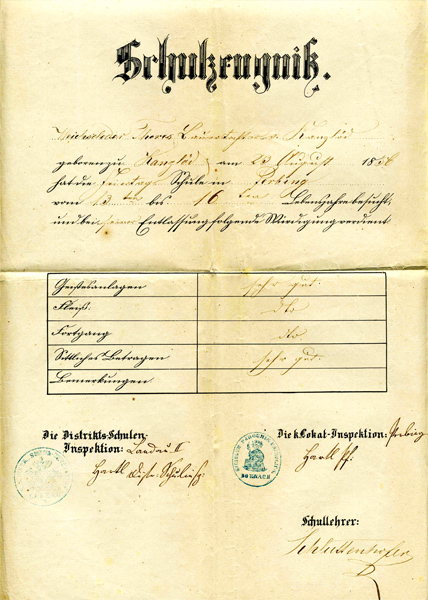 Schulzeugniß.
Theres Bauerstochter v. Kanzlöd
geboren zu Kanzlöd am 23 August 1856
hat die Feiertags Schule in
vom 13 ten bis 16 ten Lebensjahre besucht,
und bei seiner Entlassung folgende Würdigung verdient
Geistesanlagen sehr gut.
Fleiß. dto
Fortgang dto
Sittliches Betragen sehr gut.
Bemerkungen
Die Distrikts-Schulen-
Inspektion: Landau II
Hartl Distr. Schulinsp.
Die k. Lokal-Inspektion:
Hartl Pf.
Schullehrer: